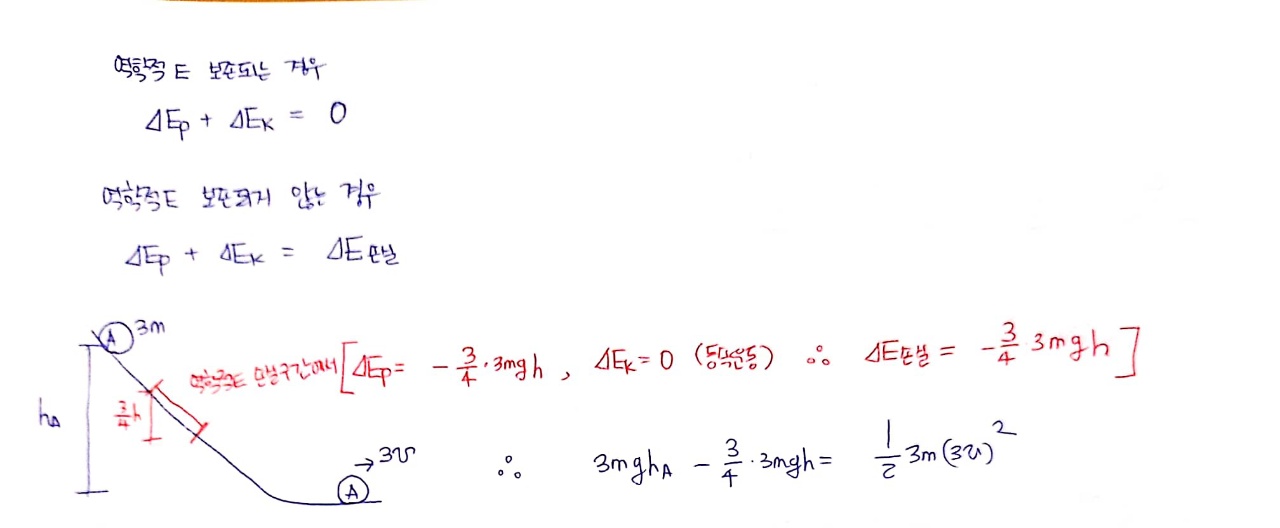 역학적E 보존되는 경우
ΔEp + ΔEK = 0
역학적E 보존되지 않는 경우
ΔEp + ΔEK = ΔE손실
A 3m
역학적E 손실구간에서 [ΔEp = -3/4 · 3mgh, ΔEK = 0 (등속운동) ∴ ΔE손실 = -3/4 3mgh]
hA
3/4 h
→ 3v
A
∴ 3mghA - 3/4 · 3mgh = 1/2 3m(3v)²